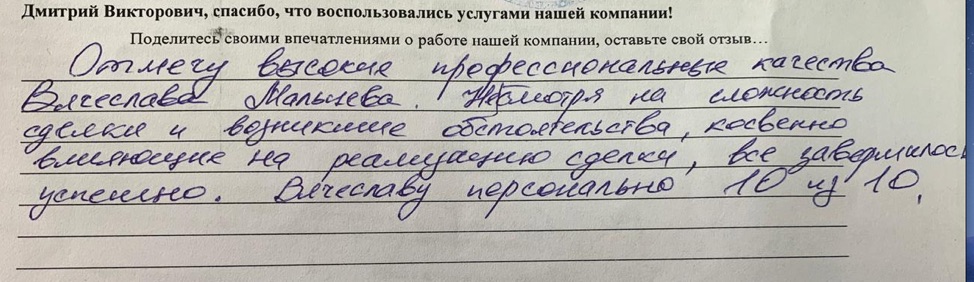 Дмитрий Викторович, спасибо, что воспользовались услугами нашей компании!
Поделитесь своими впечатлениями о работе нашей компании, оставьте свой отзыв…
Отмечу высокие профессиональные качества
Вячеслава Мальцева. Несмотря на сложность
сделки и возникшие обстоятельства, косвенно
влияющие на реализацию сделки, все завершилось
успешно. Вячеславу персонально 10 из 10.